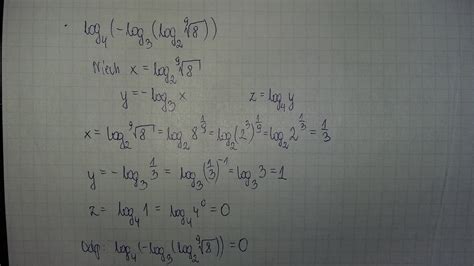 log₄(-log₃(log₂ ⁹√8))
Niech x = log₂ ⁹√8
y = -log₃ x z = log₄ y
x = log₂ ⁹√8 = log₂ 8^(1/9) = log₂ (2³)^(1/9) = log₂ 2^(1/3) = 1/3
y = -log₃ 1/3 = log₃ (1/3)⁻¹ = log₃ 3 = 1
z = log₄ 1 = log₄ 4⁰ = 0
Odp: log₄(-log₃(log₂ ⁹√8)) = 0